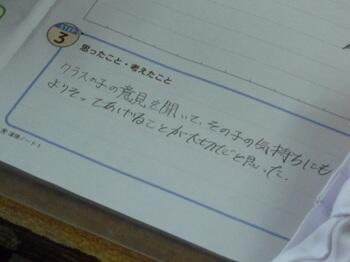 STEP
3
思ったこと・考えたこと
クラスの子の意見を聞いて、その子の気持ちにも
よりそってあげることが大切だと思った。